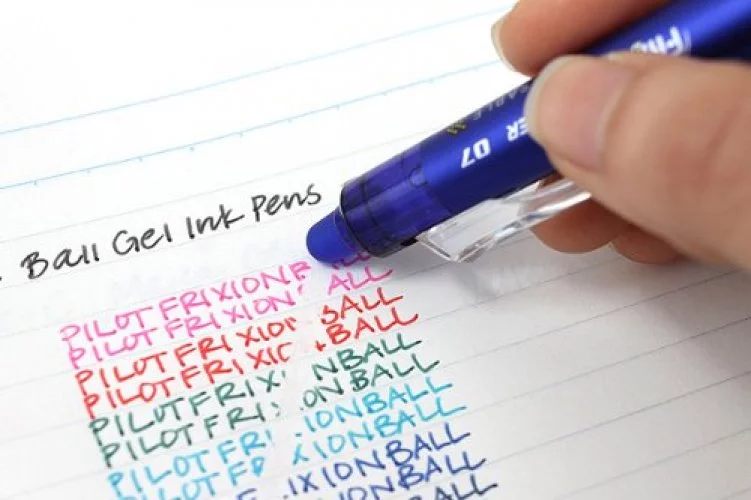 Ball Gel Ink Pens
PILOT FRIXION B
PILOT FRIXION ALL
PILOT FRIXIO BALL
PILOT FRIXIO BALL
PILOT FRIX NBALL
PILOT FRI ONBALL
PILOT FR IONBALL
PILOT F IONBALL
IXIONBALL
IONBALL
ER 07